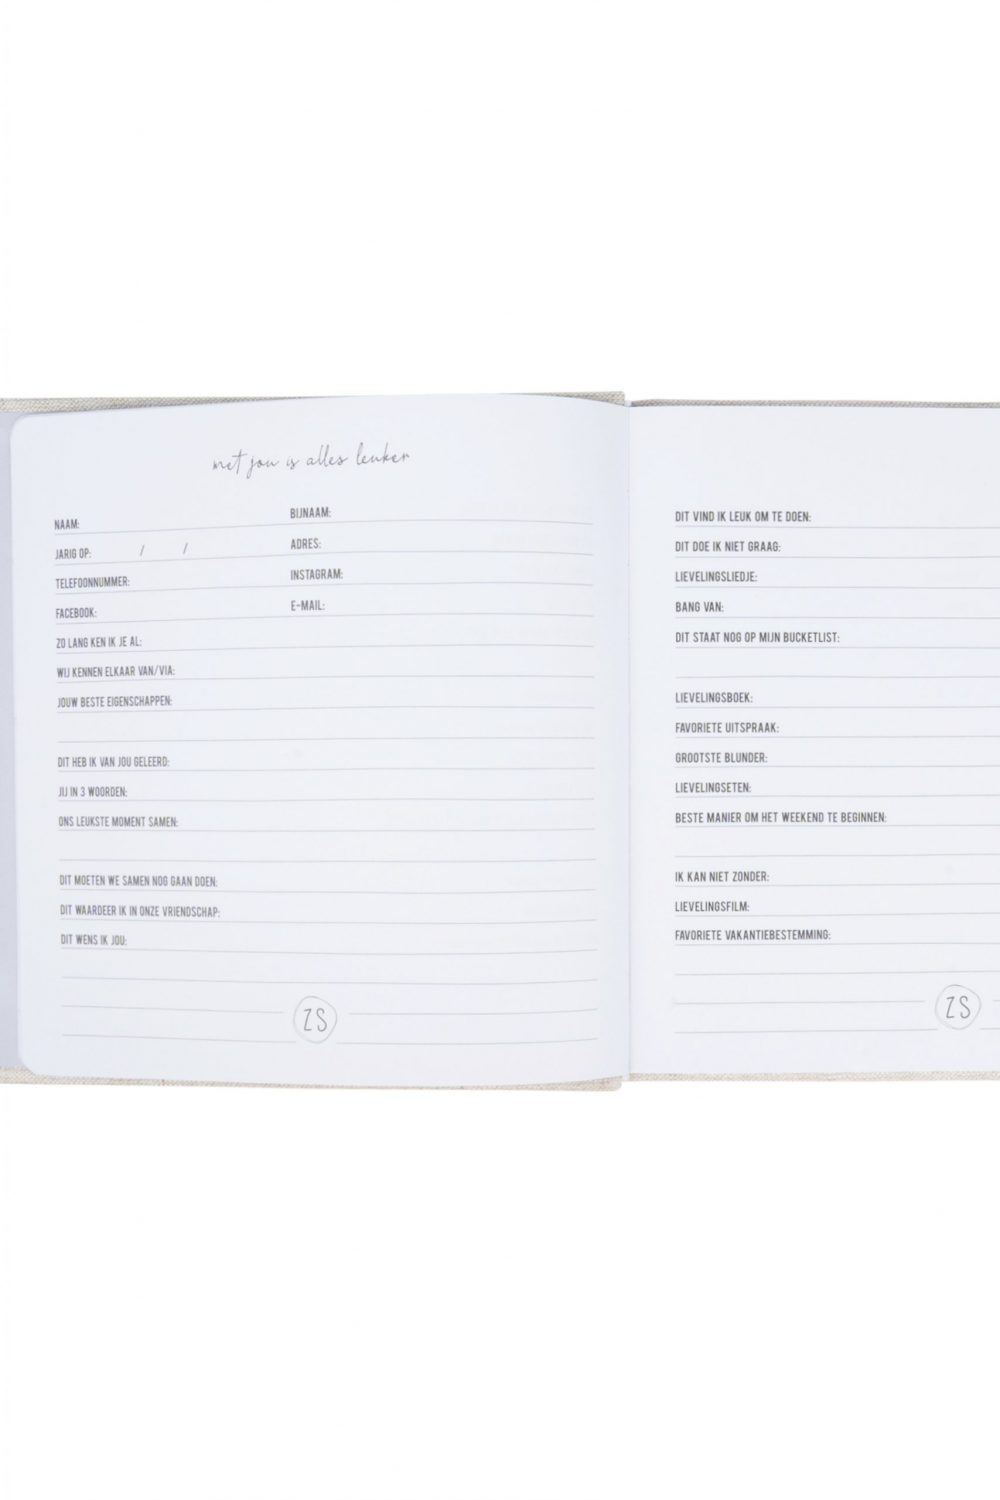 met jou is alles leuker
NAAM: BIJNAAM:
JARIG OP: / / ADRES:
TELEFOONNUMMER: INSTAGRAM:
FACEBOOK: E-MAIL:
ZO LANG KEN IK JE AL:
WIJ KENNEN ELKAAR VAN/VIA:
JOUW BESTE EIGENSCHAPPEN:
DIT HEB IK VAN JOU GELEERD:
JIJ IN 3 WOORDEN:
ONS LEUKSTE MOMENT SAMEN:
DIT MOETEN WE SAMEN NOG GAAN DOEN:
DIT WAARDEER IK IN ONZE VRIENDSCHAP:
DIT WENS IK JOU:
ZS
DIT VIND IK LEUK OM TE DOEN:
DIT DOE IK NIET GRAAG:
LIEVELINGSLIEDJE:
BANG VAN:
DIT STAAT NOG OP MIJN BUCKETLIST:
LIEVELINGSBOEK:
FAVORIETE UITSPRAAK:
GROOTSTE BLUNDER:
LIEVELINGSETEN:
BESTE MANIER OM HET WEEKEND TE BEGINNEN:
IK KAN NIET ZONDER:
LIEVELINGSFILM:
FAVORIETE VAKANTIEBESTEMMING:
ZS